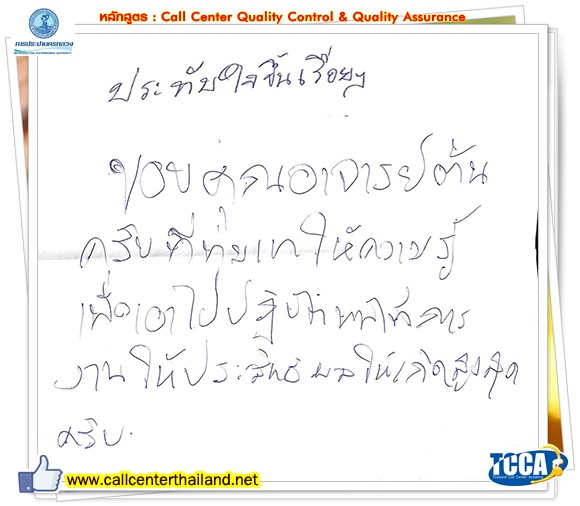 หลักสูตร : Call Center Quality Control & Quality Assurance
การประปานครหลวง
METROPOLITAN WATERWORKS AUTHORITY
ประทับใจขึ้นเรื่อยๆ
ขอบคุณอาจารย์ต้น
ครับที่ทุ่มเทให้ความรู้
เพื่อเอาไปปฏิบัติ
งานให้ประสิทธิผลให้เกิดสูงสุด
ครับ.
www.callcenterthailand.net
TCCA
Thailand Call Center Academy